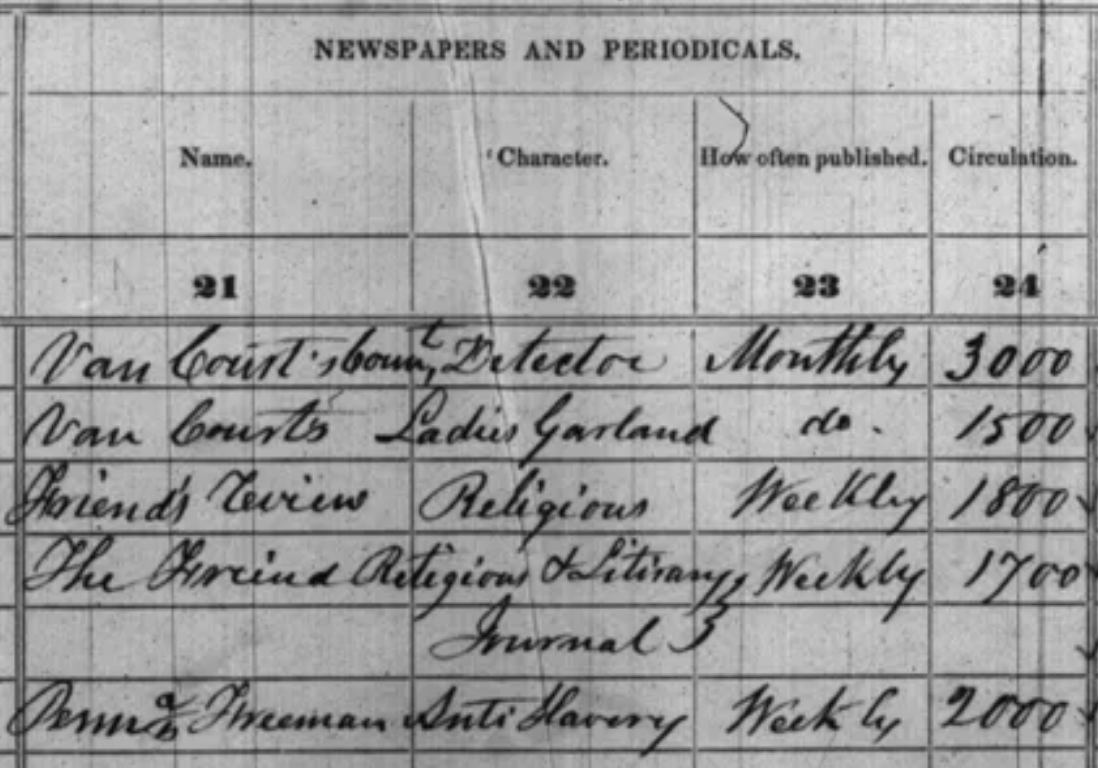 NEWSPAPERS AND PERIODICALS.
Name. Character. How often published. Circulation.
21 22 23 24
Van Court's Count, Detector Monthly 3000
Van Court's Ladies Garland do. 1500
Friends Review Religious Weekly 1800
The Freind Religious & Litirary Weekly 1700
Journal
Penna Freeman Anti Slavery Weekly 2000